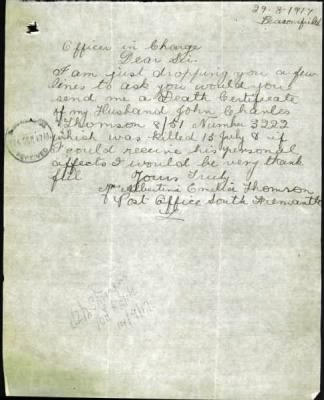 29-8-1917
Beaconsfield
Officer in Charge
Dear Sir.
I am just dropping you a few
lines to ask you would you
send me a Death Certificate
of my Husband John Charles
Thomson 8/51 Number 3222
which was killed 15 July & if
I could receive his personal
affects I would be very thank
full Yours Truly
Mrs Albertina Emelia Thomson
Post Office South Fremantle